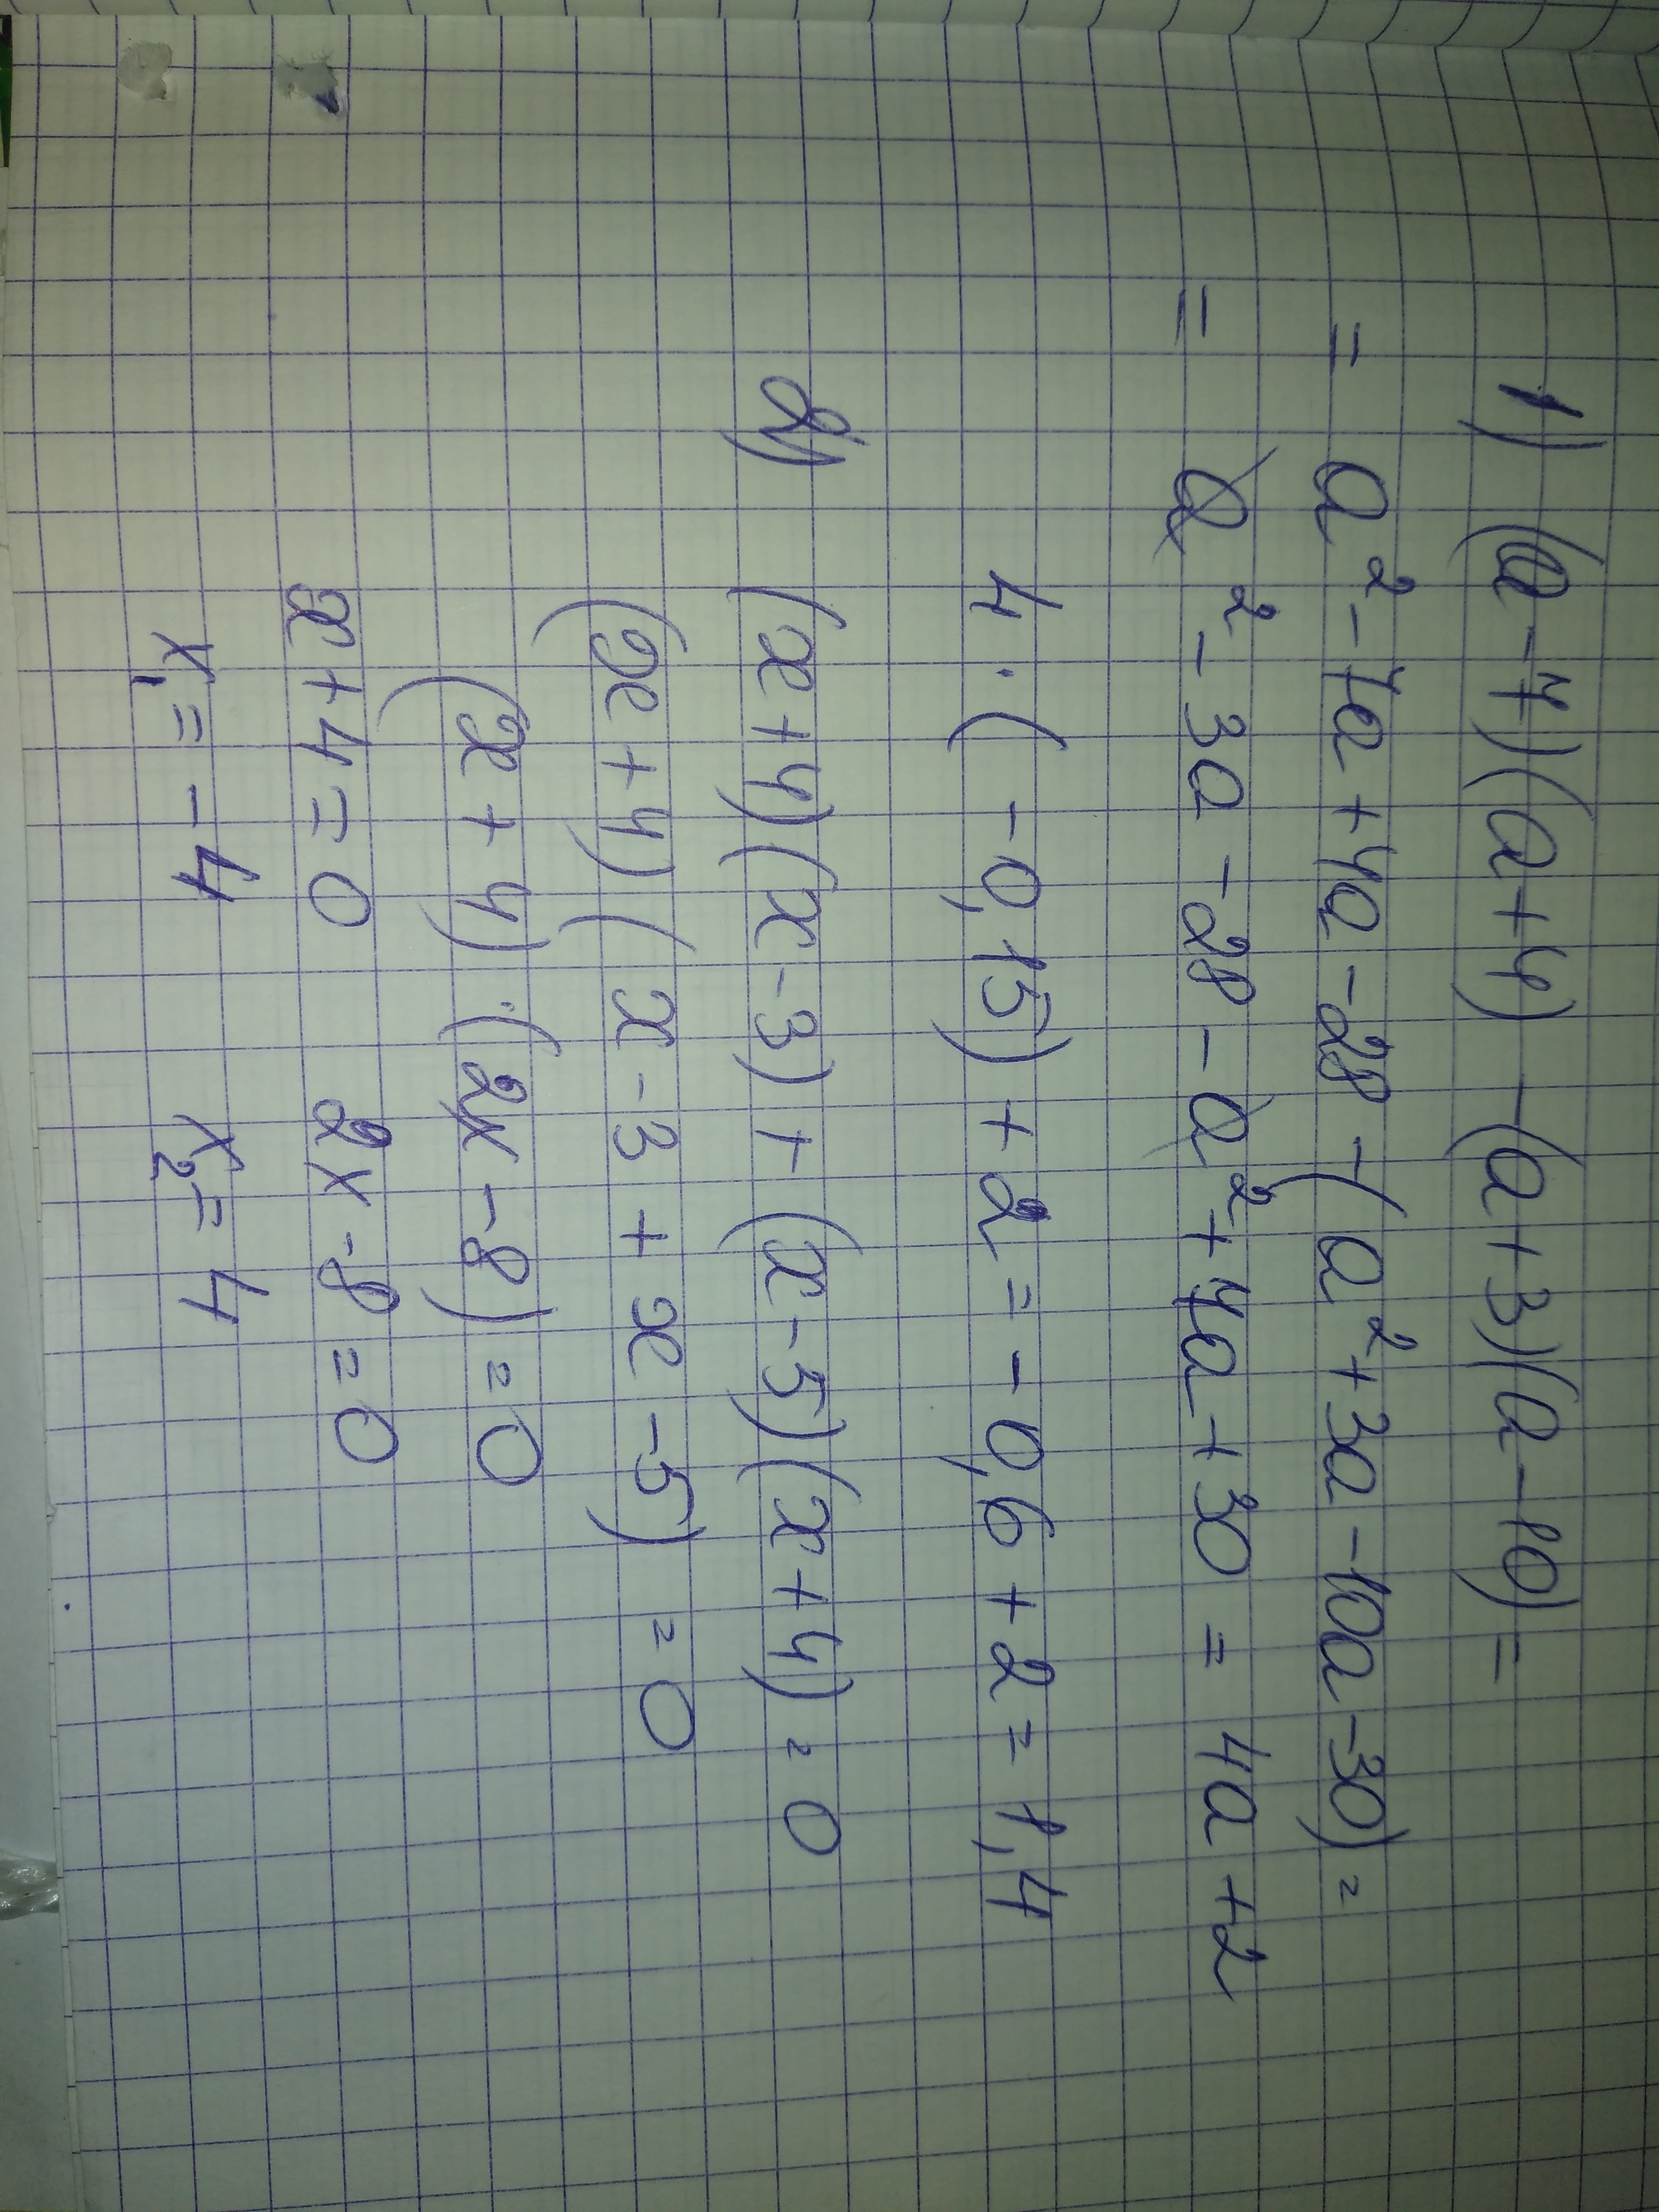 1) (a-7)(a+4) - (a+3)(a-10) =
= a² - 7a + 4a - 28 - (a² + 3a - 10a - 30) =
= a² - 3a - 28 - a² + 7a + 30 = 4a + 2
4 · (-0,15) + 2 = -0,6 + 2 = 1,4
2) (x+4)(x-3) + (x-5)(x+4) = 0
(x+4)(x-3+x-5) = 0
(x+4)·(2x-8) = 0
x+4=0 2x-8=0
x₁ = -4 x₂ = 4